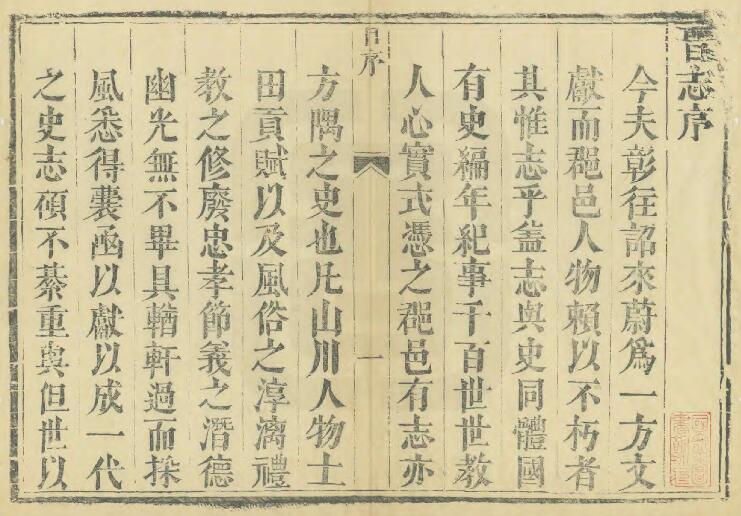 舊志序
今夫彰往詔來蔚爲一方文
獻而郡邑人物賴以不朽者
其惟志乎盖志與史同體國
有史編年紀事千百世世教
人心實式憑之郡邑有志亦
序
一
方隅之史也凡山川人物土
田貢賦以及風俗之淳漓禮
教之修廢忠孝節義之潛德
幽光無不畢具輶軒過而採
風悉得囊函以獻以成一代
之史志顧不綦重與但世以